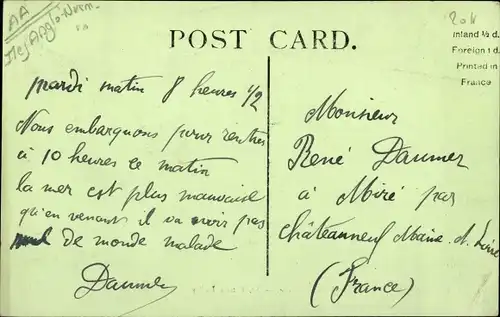 AA
Iles Anglo-Norm.
20k
POST CARD.
Inland ½ d.
Foreign 1 d.
Printed in
France
Mardi matin 8 heures 1/2
Nous embarquons pour rentrer
à 10 heures ce matin
la mer est plus mauvaise
qu'en venant il va avoir pas
mal de monde malade
Daumer
Monsieur
René Daumer
à Miré par
Châteauneuf Maine. et. Loire
(France)